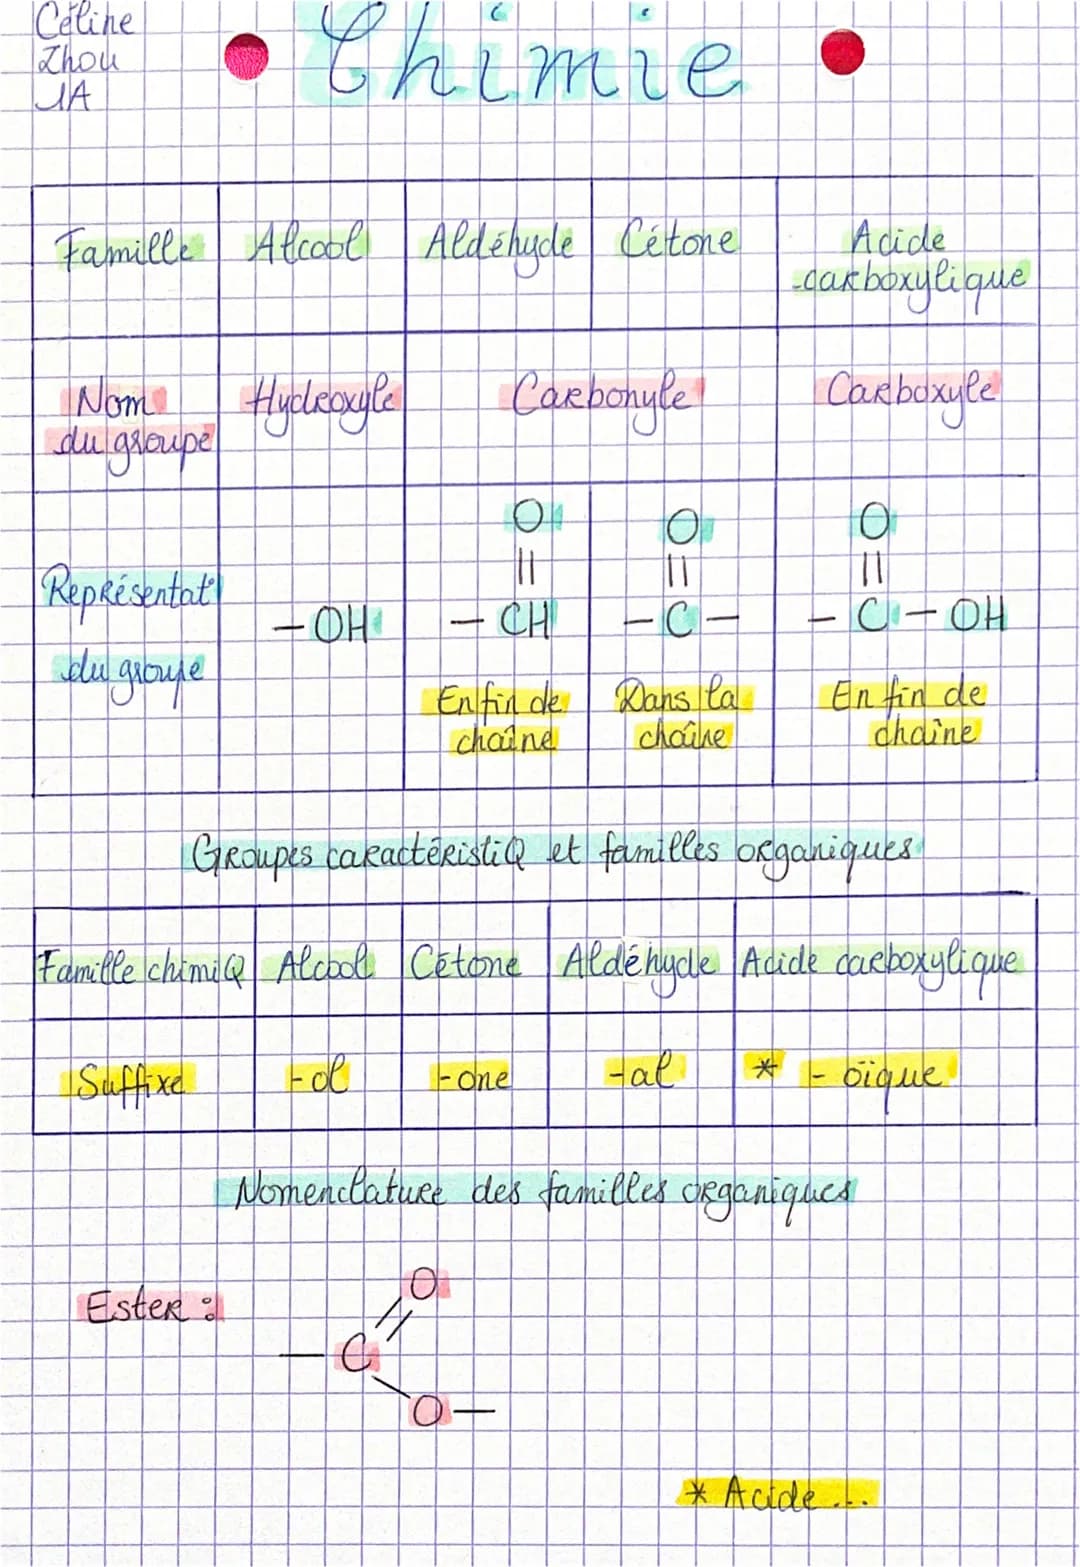 Céline
Zhou
1A
Chimie
Famille Alcool Aldéhyde Cétone Acide
carboxylique
Nom Hydroxyle Carbonyle Carboxyle
du groupe
O O O
|| || ||
Représentat°
- OH - CH - C - - C - OH
du groupe
En fin de Dans la En fin de
chaîne chaîne chaîne
Groupes caractéristiQ et familles organiques
Famille chimiQ Alcool Cétone Aldéhyde Acide carboxylique
Suffixe -ol -one -al * - oïque
Nomenclature des familles organiques
Ester :
O
- C
O -
* Acide ...